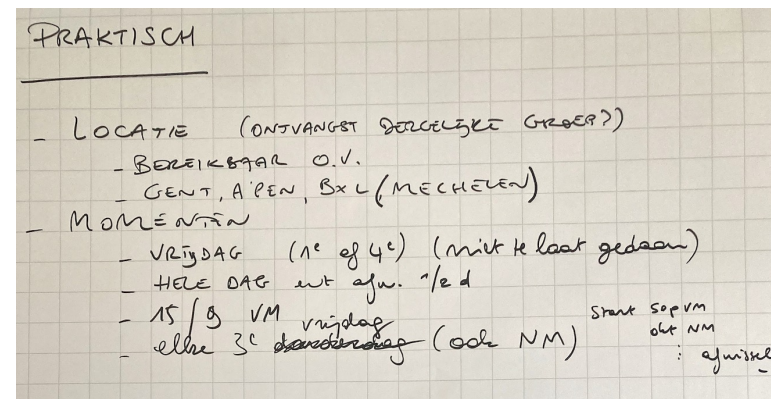 PRAKTISCH
- LOCATIE (ONTVANGST DERGELIJKE GROEP?)
- BEREIKBAAR O.V.
- GENT, A'PEN, BXL (MECHELEN)
- MOMENTEN
- VRIJDAG (1e of 4e) (niet te laat gedaan)
- HELE DAG evt afw. 1/2 d
- 15/9 VM
vrijdag
- elke 3e donderdag (ook NM)
start sep VM
okt NM
: afwissel